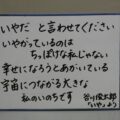 いやだ と言わせてください
いやがっているのは
ちっぽけな私じゃない
幸せになろうとあがいている
宇宙につながる大きな
私のいのちです
谷川俊太郎
「いや」より